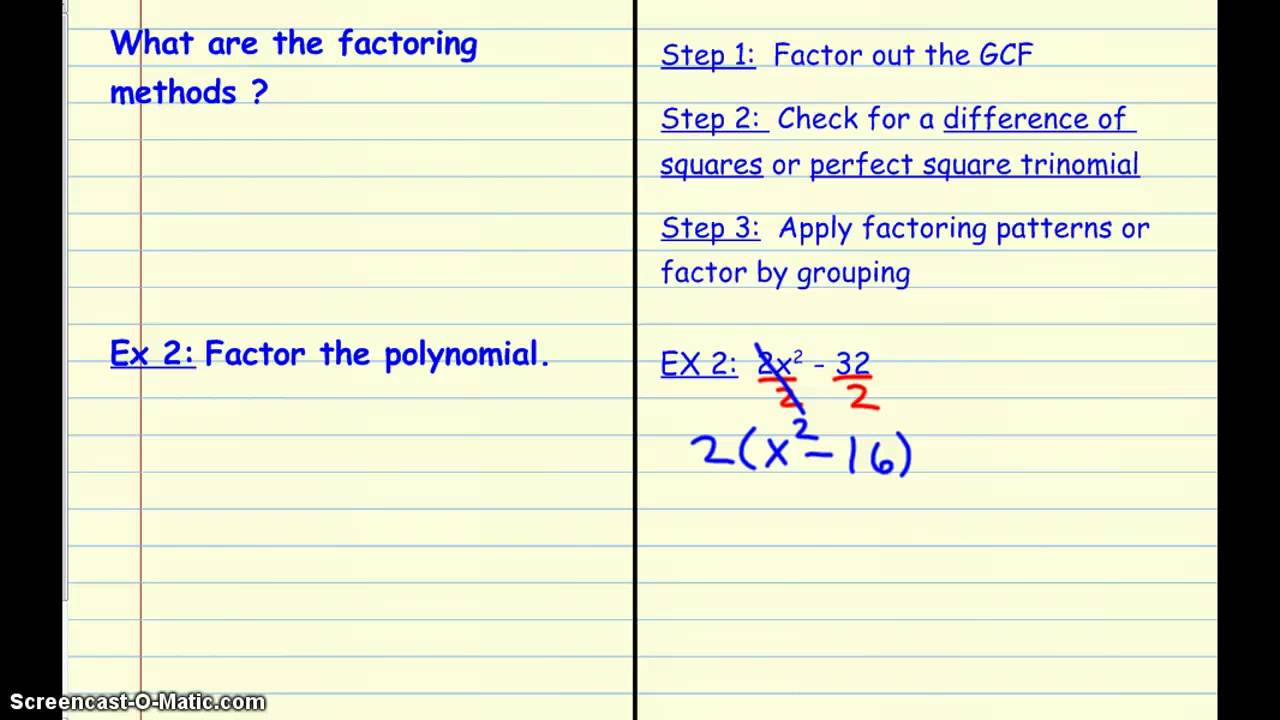 What are the factoring
methods ?
Step 1: Factor out the GCF
Step 2: Check for a difference of
squares or perfect square trinomial
Step 3: Apply factoring patterns or
factor by grouping
Ex 2: Factor the polynomial.
EX 2: 2x² - 32
2 2
2(x² - 16)
Screencast-O-Matic.com